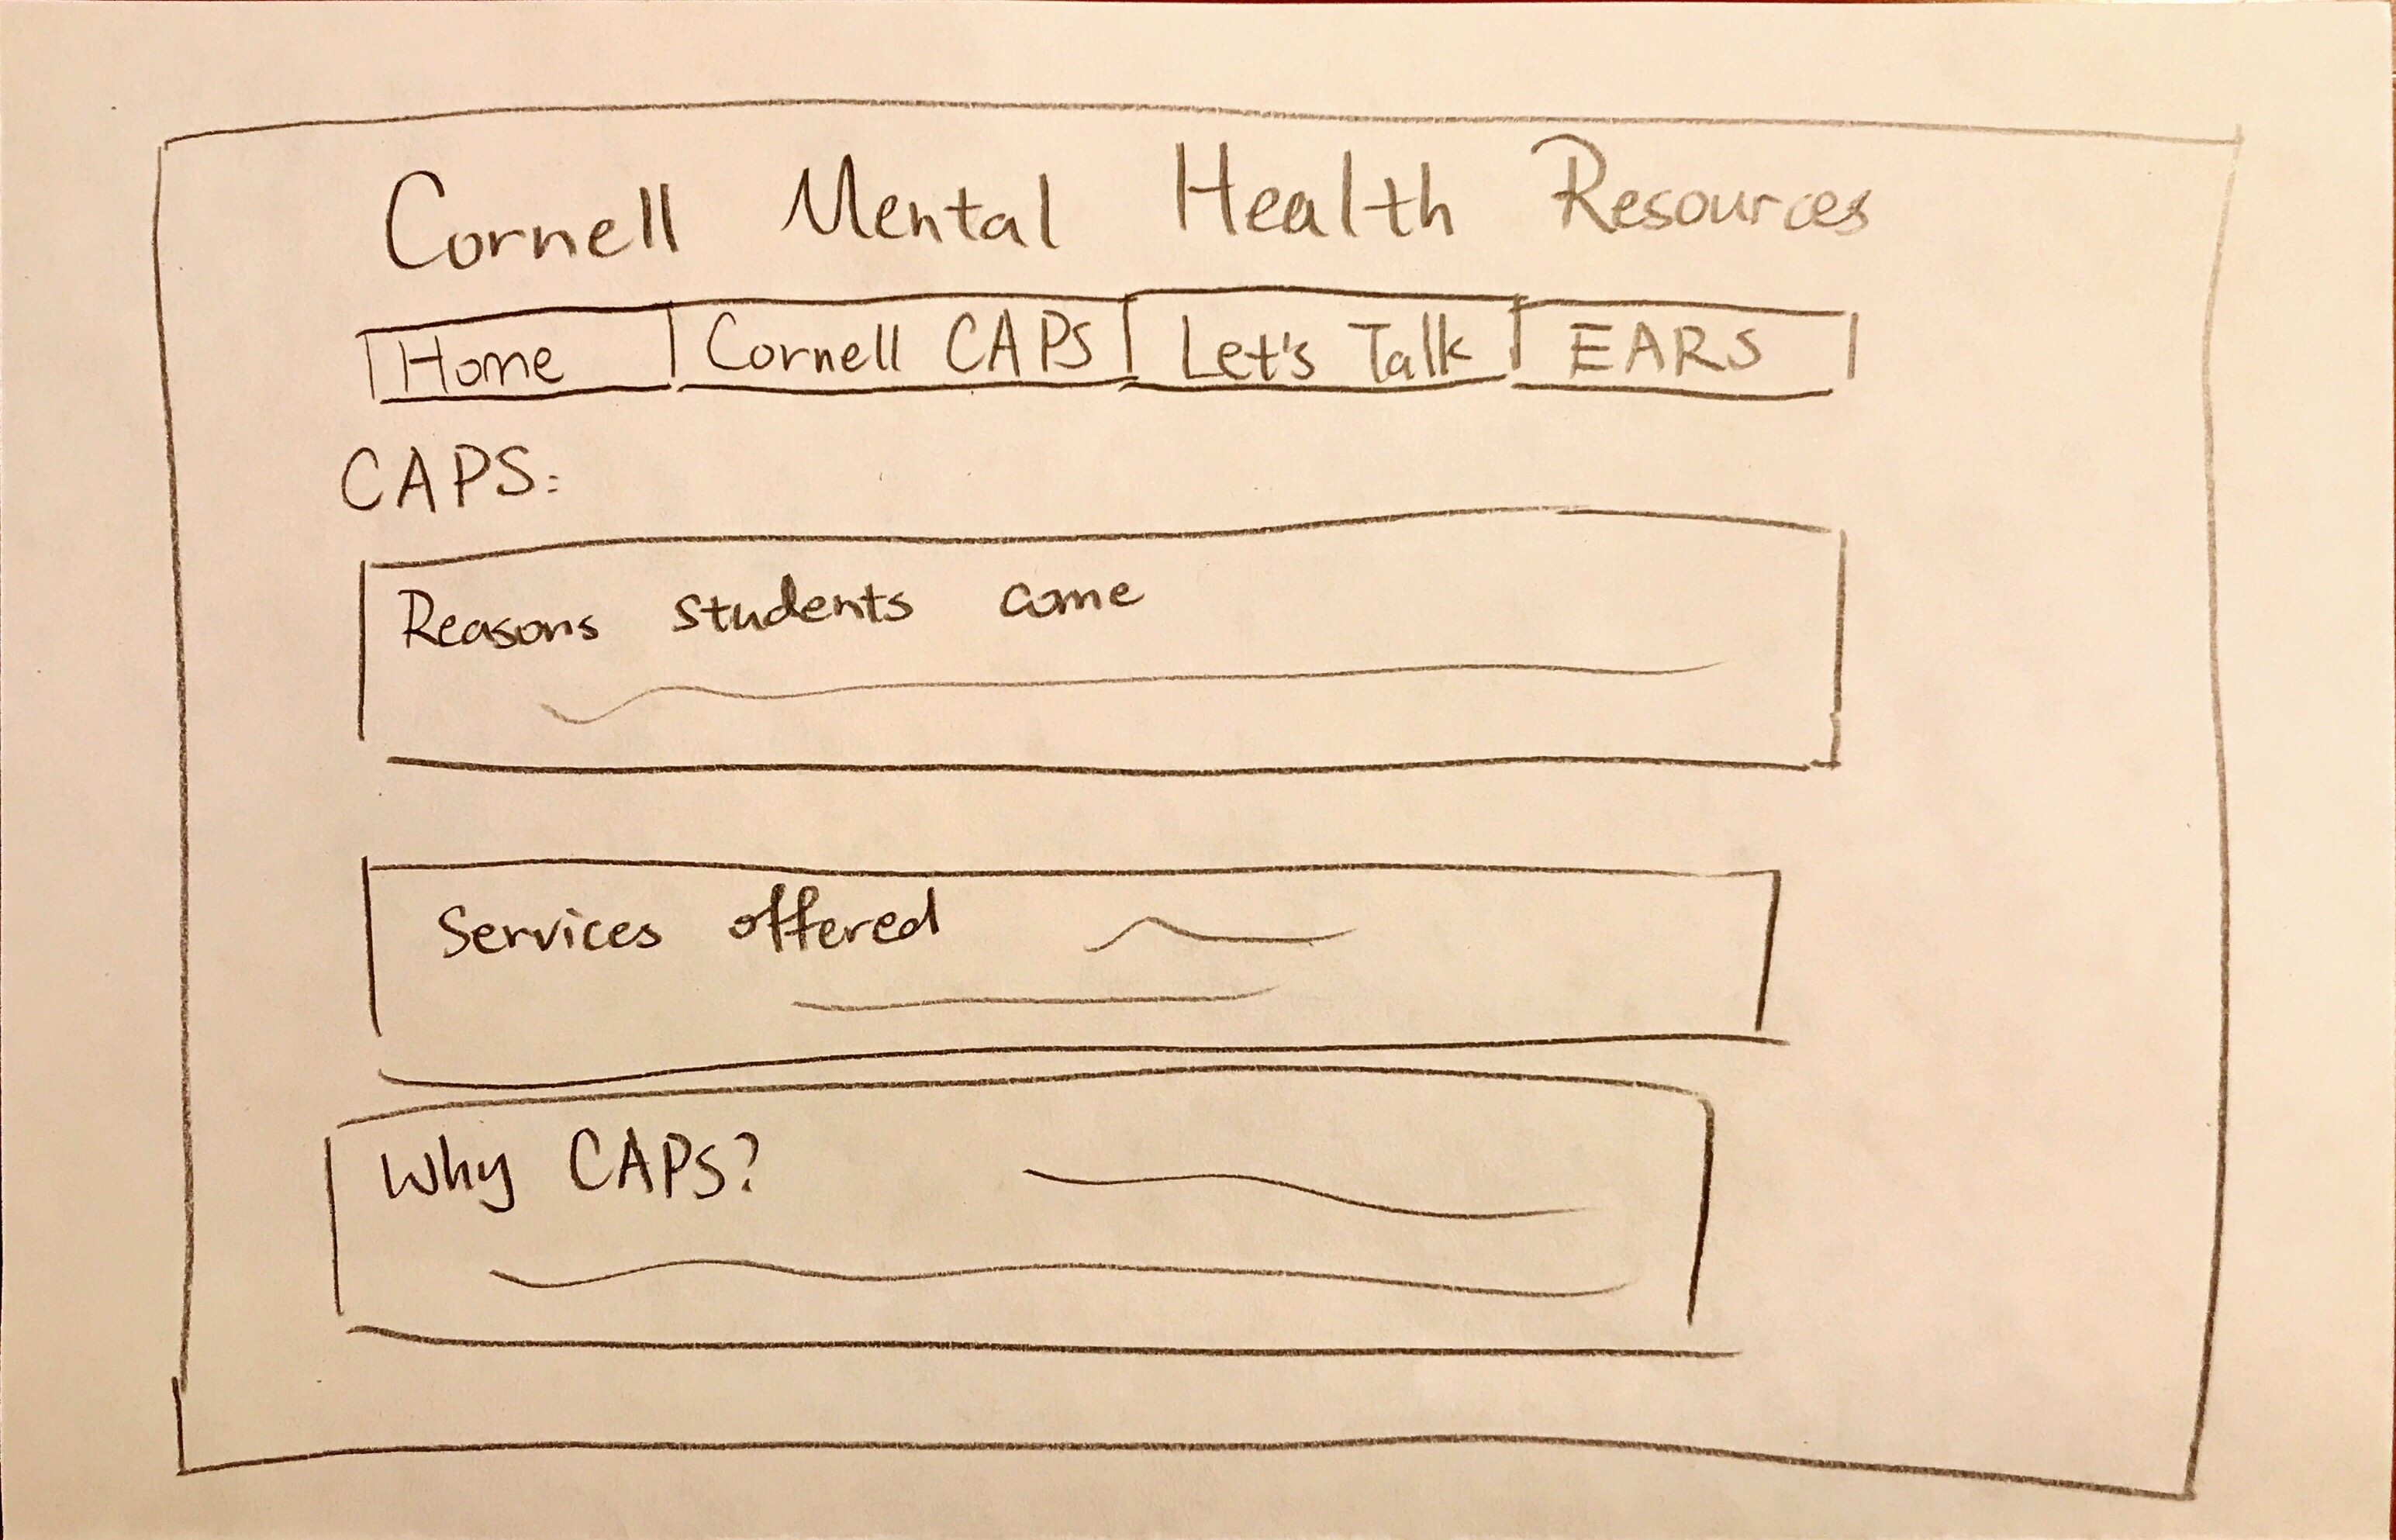 Cornell Mental Health Resources
Home Cornell CAPS Let's Talk EARS
CAPS:
Reasons students come
Services offered
Why CAPS?